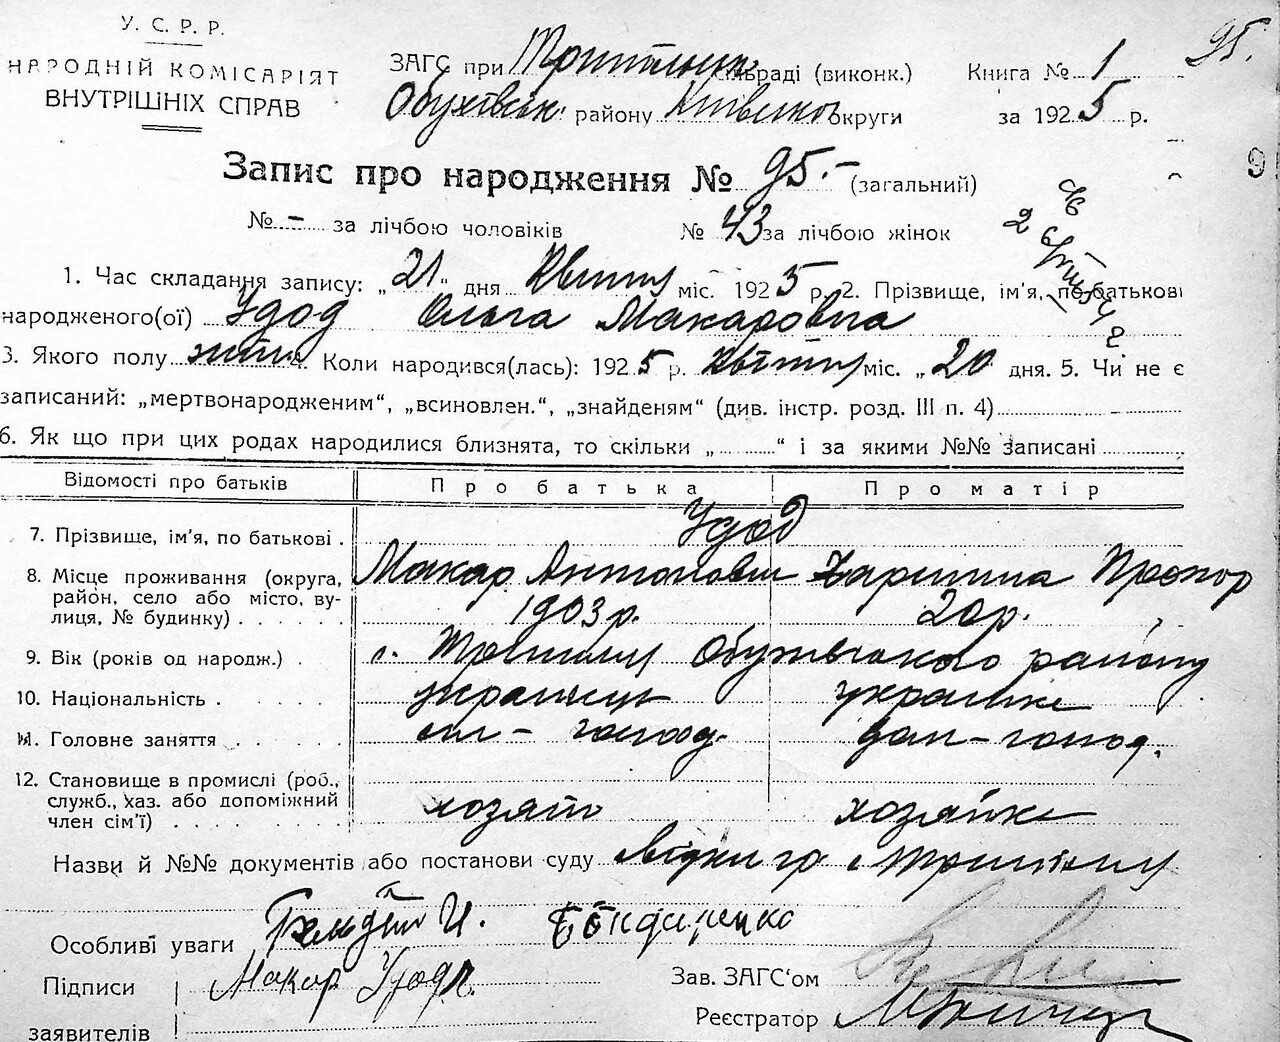 У. С. Р. Р.
95.
НАРОДНІЙ КОМІСАРІЯТ
ВНУТРІШНІХ СПРАВ
ЗАГС при сільраді (виконк.) Книга № 1
Обухівськ району Київської округи за 1925 р.
Запис про народження № 95.- (загальний)
9
№ - за лічбою чоловіків № 43 за лічбою жінок
1. Час складання запису: „21“ дня Квітня міс. 1925 р. 2. Прізвище, ім'я, по батькові
народженого(ої) Удод Ольга Макаровна
3. Якого полу жін. 4. Коли народився(лась): 1925 р. Квітня міс. „20 дня. 5. Чи не є
записаний: „мертвонародженим“, „всиновлен.“, „знайденям“ (див. інстр. розд. III п. 4)
6. Як що при цих родах народилися близнята, то скільки „ “ і за якими №№ записані
Відомості про батьків Про батька Про матір
7. Прізвище, ім'я, по батькові . Удод
Макар Антонович Харитина Прохор
8. Місце проживання (округа,
район, село або місто, ву-
лиця, № будинку)
1903 р. 20 р.
9. Вік (років од народж.) . с. Трипілля Обухівського району
10. Національність . українець українка
11. Головне заняття сіл - господ. дом - господ.
12. Становище в промислі (роб.,
служб., хаз. або допоміжний
член сім'ї)
хозяїн хозяйка
Назви й №№ документів або постанови суду
Особливі уваги И. Бондаренко
Підписи Макар Удод Зав. ЗАГС'ом
заявителів Реєстратор